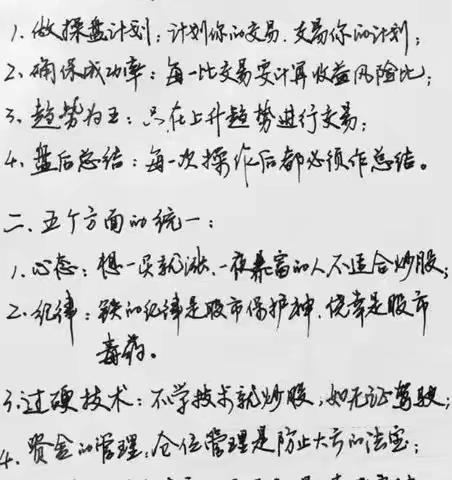 1. 做操盘计划：计划你的交易．交易你的计划；
2、确保成功率：每一比交易要计算收益风险比；
3、趋势为王：只在上升趋势进行交易；
4、盘后总结：每一次操作后都必须作总结。
二、五个方面的统一：
1. 心态：想一买就涨．一夜暴富的人不适合炒股；
2. 纪律：铁的纪律是股市保护神．侥幸是股市
毒药。
3.过硬技术：不学技术就炒股，如无证驾驶；
4、资金的管理：仓位管理是防止大亏的法宝；